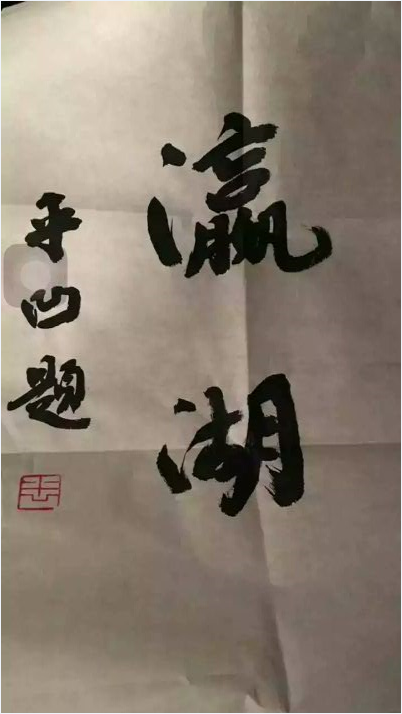 瀛湖
平凹题